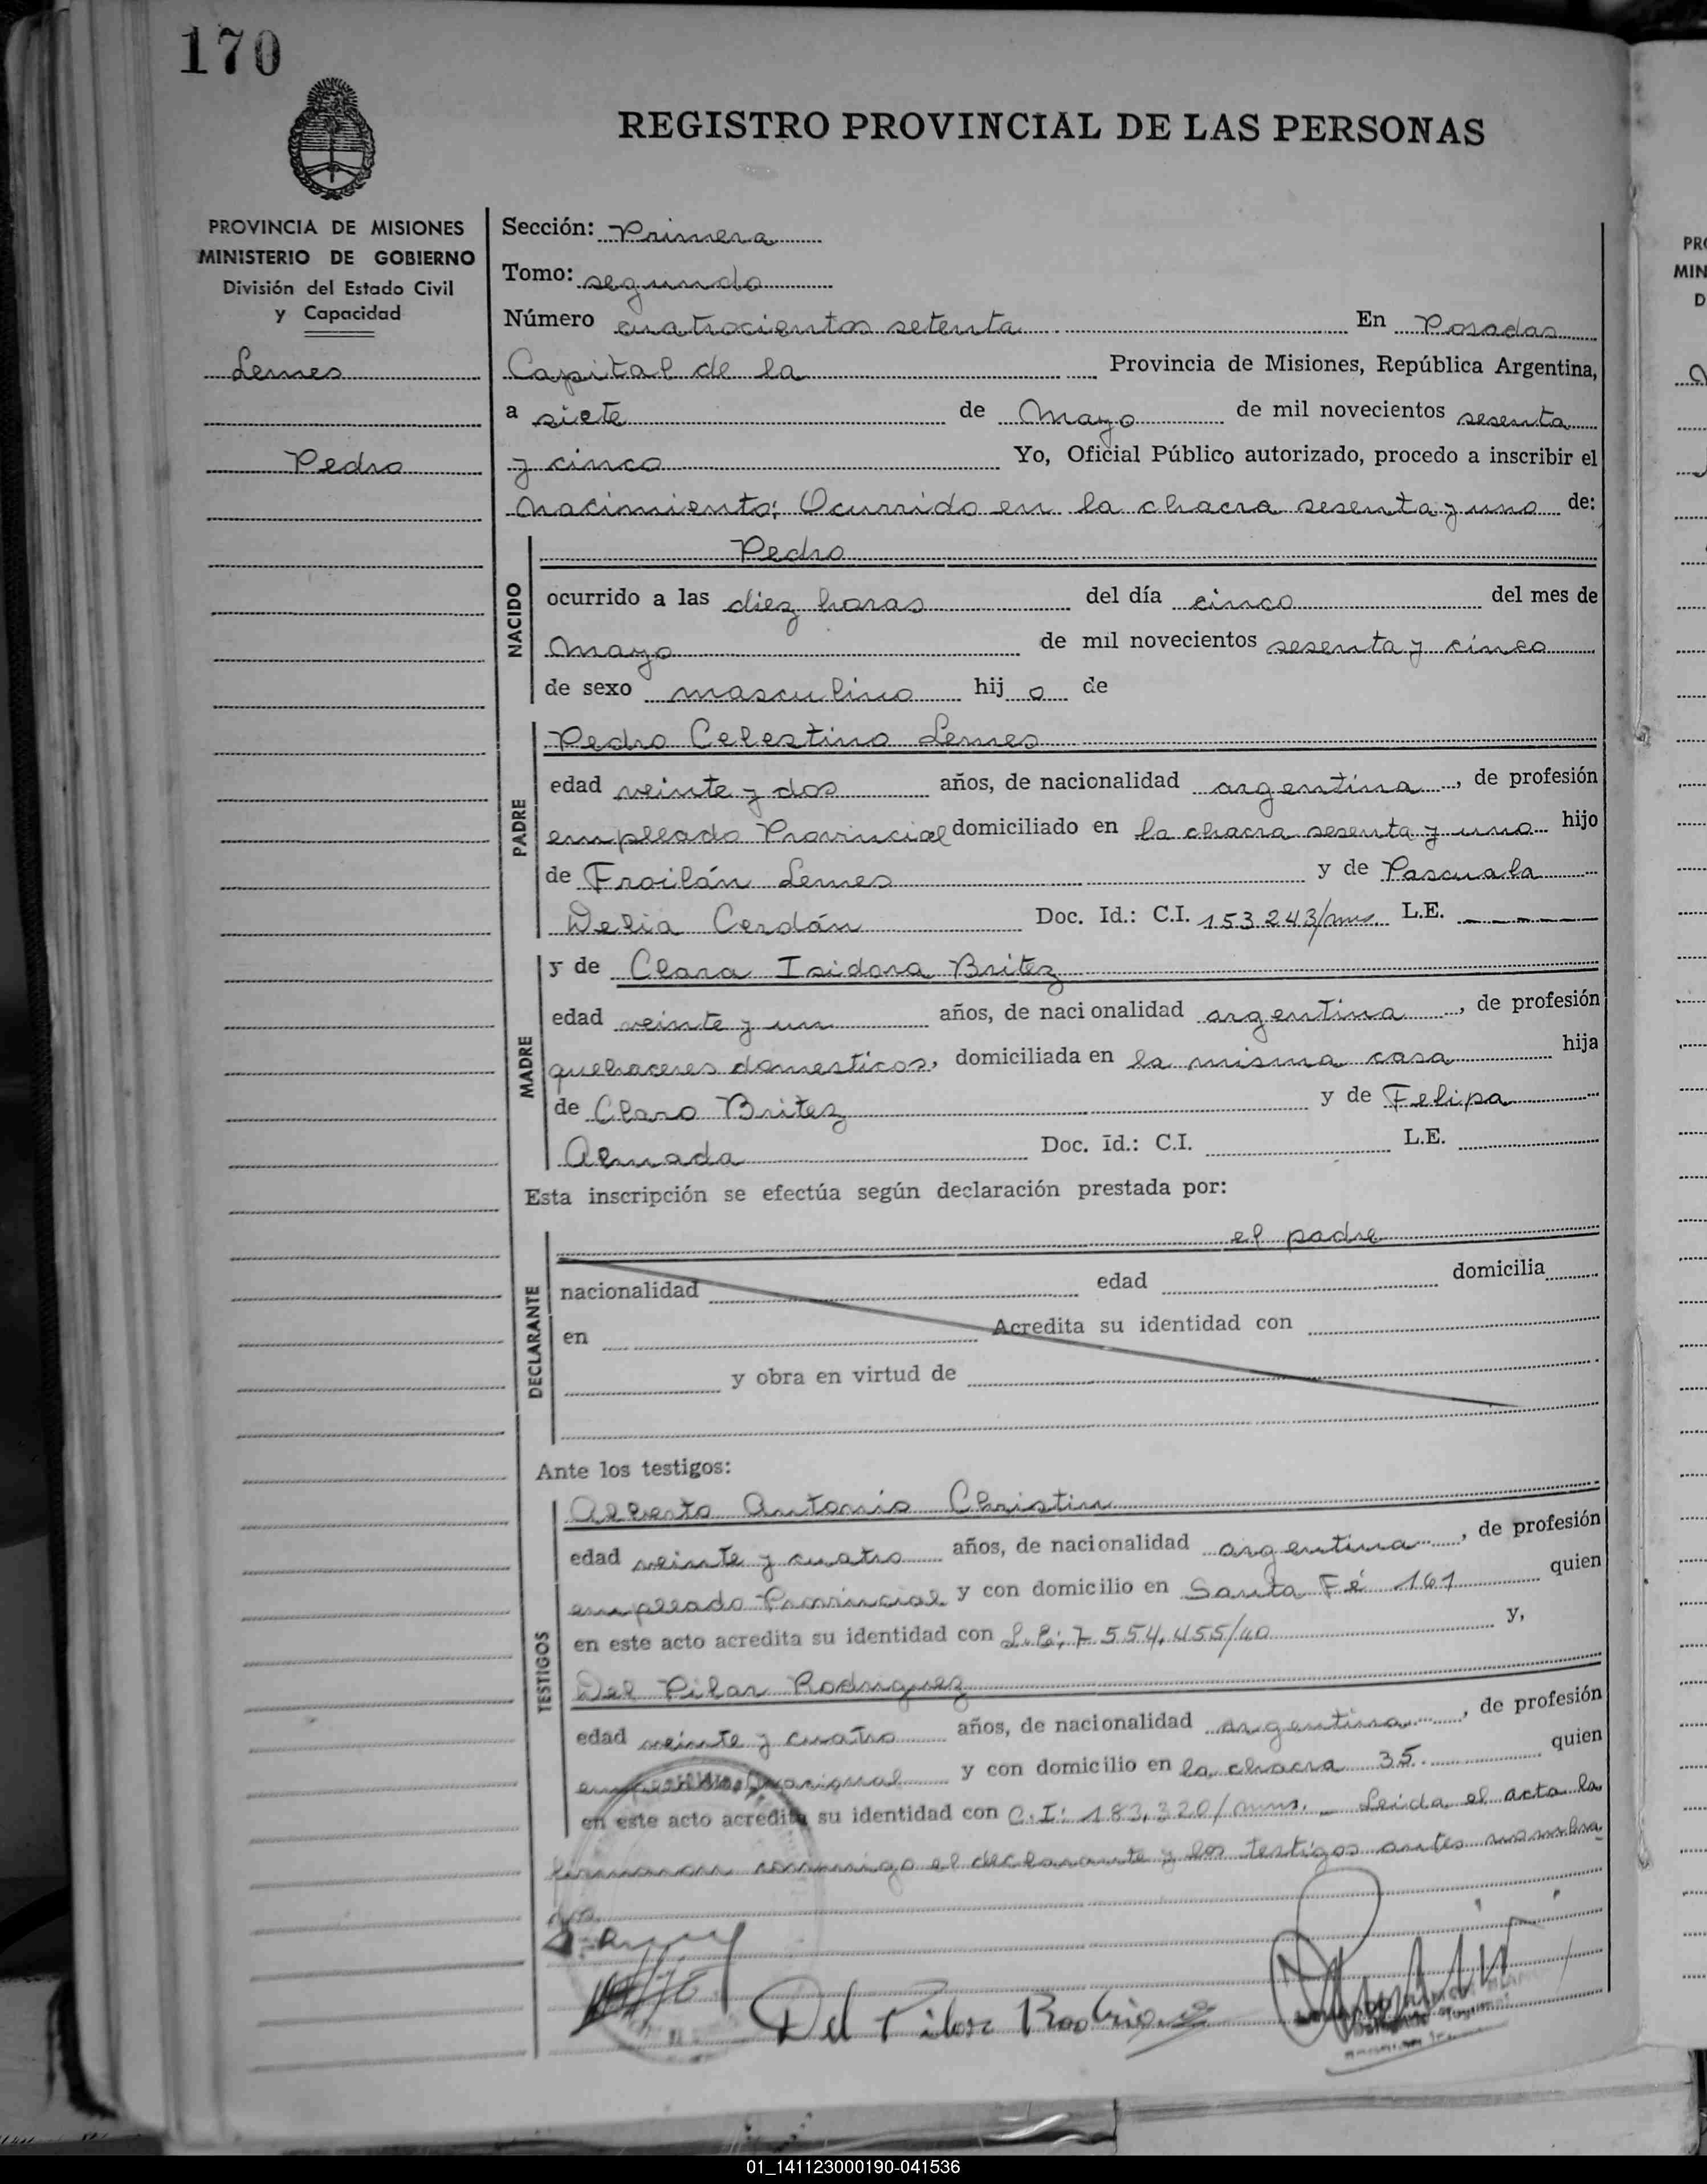 170
REGISTRO PROVINCIAL DE LAS PERSONAS
PROVINCIA DE MISIONES
MINISTERIO DE GOBIERNO
División del Estado Civil
y Capacidad
Lemes
Pedro
Sección: Primera
Tomo: segundo
Número cuatrocientos setenta En Posadas
Capital de la Provincia de Misiones, República Argentina,
a siete de Mayo de mil novecientos sesenta
y cinco Yo, Oficial Público autorizado, procedo a inscribir el
nacimiento: Ocurrido en la chacra sesenta y uno de:
NACIDO
Pedro
ocurrido a las diez horas del día cinco del mes de
Mayo de mil novecientos sesenta y cinco
de sexo masculino hij o de
PADRE
Pedro Celestino Lemes
edad veinte y dos años, de nacionalidad argentina, de profesión
empleado Provincial domiciliado en la chacra sesenta y uno hijo
de Froilán Lemes y de Pascuala
Delia Cerdán Doc. Id.: C.I. 153.243/mns. L.E.
MADRE
y de Clara Isidora Britez
edad veinte y un años, de nacionalidad argentina, de profesión
quehaceres domesticos, domiciliada en la misma casa hija
de Claro Britez y de Felipa
Almada Doc. Id.: C.I. L.E.
Esta inscripción se efectúa según declaración prestada por:
DECLARANTE
el padre
nacionalidad edad domicilia
en Acredita su identidad con
y obra en virtud de
Ante los testigos:
TESTIGOS
Alberto Antonio Christin
edad veinte y cuatro años, de nacionalidad argentina, de profesión
empleado Provincial y con domicilio en Santa Fé 161 quien
en este acto acredita su identidad con L.E: 7.554.455/40 y,
Del Pilar Rodriguez
edad veinte y cuatro años, de nacionalidad argentina, de profesión
y con domicilio en la chacra 35. quien
en este acto acredita su identidad con C.I: 183.320/mns. - Leida el acta la
firmaron conmigo el declarante y los testigos antes nombra
dos.
Del Pilar Rodriguez
PRO
MIN
D
01_141123000190-041536